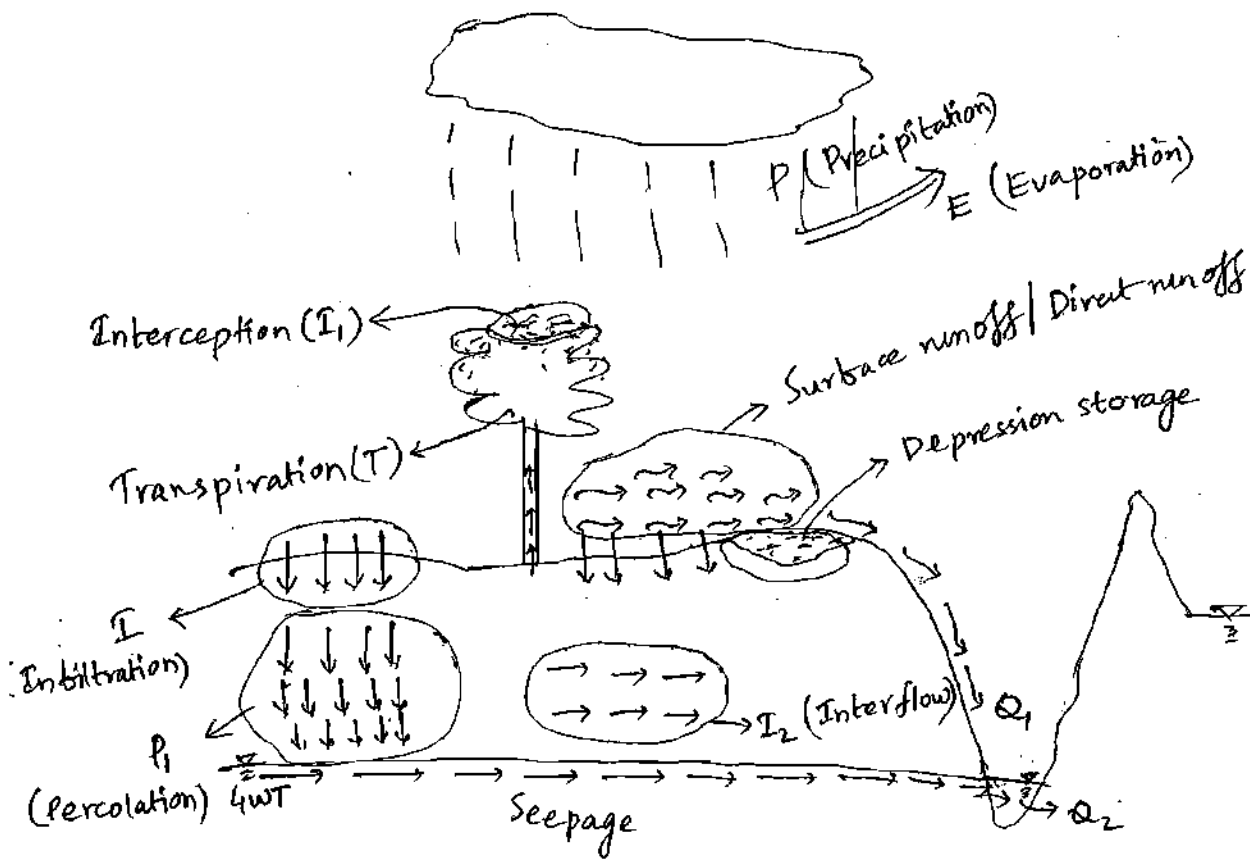 P (Precipitation)
E (Evaporation)
Interception (I₁)
Surface runoff / Direct runoff
Depression storage
Transpiration (T)
I
(Infiltration)
I₂ (Interflow)
Q₁
P₁
(Percolation) GWT
Seepage
Q₂